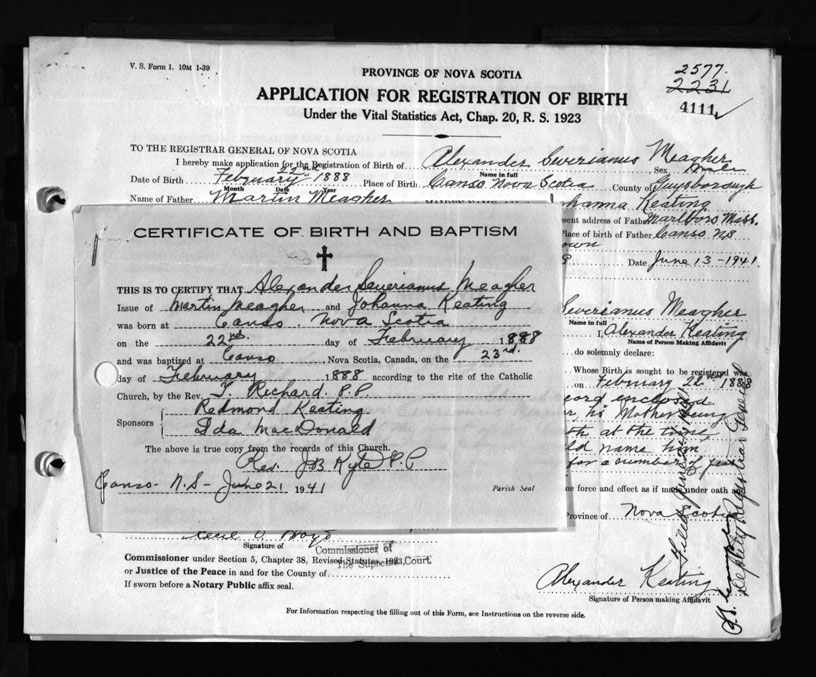 V. S. Form 1. 10M 1-39
2577.
2231
4111
PROVINCE OF NOVA SCOTIA
APPLICATION FOR REGISTRATION OF BIRTH
Under the Vital Statistics Act, Chap. 20, R. S. 1923
TO THE REGISTRAR GENERAL OF NOVA SCOTIA
I hereby make application for the Registration of Birth of Alexander Severianus Meagher
Name in full Sex
Date of Birth February 22nd 1888 Place of Birth Canso Nova Scotia County of Guysborough
Month Day Year
Name of Father Martin Meagher Johanna Keating
present address of Father Marlboro, Mass.
Place of birth of Father Canso NS
Date June 13-1941.
CERTIFICATE OF BIRTH AND BAPTISM
THIS IS TO CERTIFY THAT Alexander Severianus Meagher
Issue of Martin Meagher and Johanna Keating
was born at Canso. Nova Scotia
on the 22nd. day of February 1888
and was baptized at Canso, Nova Scotia, Canada, on the 23rd.
day of February 1888 according to the rite of the Catholic
Church, by the Rev. T. Richard. P.P.
Sponsors Redmond Keating
Ida MacDonald
The above is true copy from the records of this Church.
Rev. JB Kyte P.P
Canso- N.S- June 21 1941 Parish Seal
Severianus Meagher
Name in full
I, Alexander Keating
Name of Person Making Affidavit
do solemnly declare:
Whose Birth is sought to be registered was
on February 22nd 1888
enclosed
his Mother being
at the time,
name him
for a number of
force and effect as if made under oath
Province of Nova Scotia
Signature of
Commissioner of
The Supreme Court
Commissioner under Section 5, Chapter 38, Revised Statutes, 1923,
or Justice of the Peace in and for the County of
If sworn before a Notary Public affix seal.
Alexander Keating
Signature of Person making Affidavit
Deputy Registrar General
For Information respecting the filling out of this Form, see Instructions on the reverse side.